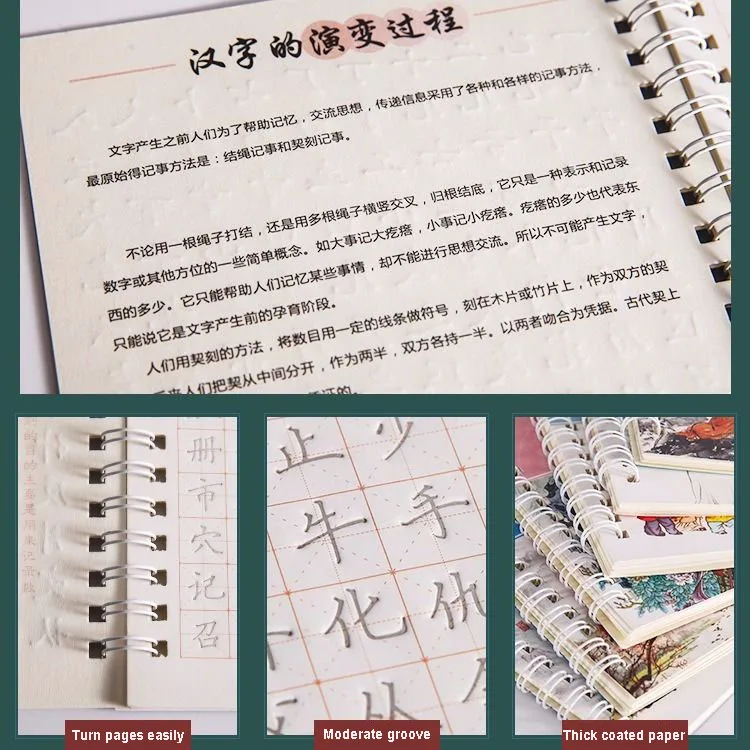 汉字的演变过程
文字产生之前人们为了帮助记忆，交流思想，传递信息采用了各种和各样的记事方法，
最原始得记事方法是：结绳记事和契刻记事。
不论用一根绳子打结，还是用多根绳子横竖交叉，归根结底，它只是一种表示和记录
数字或其他方位的一些简单概念。如大事记大疙瘩，小事记小疙瘩。疙瘩的多少也代表东
西的多少。它只能帮助人们记忆某些事情，却不能进行思想交流。所以不可能产生文字，
只能说它是文字产生前的孕育阶段。
人们用契刻的方法，将数目用一定的线条做符号，刻在木片或竹片上，作为双方的契
人们把契从中间分开，作为两半，双方各持一半。以两者吻合为凭据。古代契上
册
市
穴
记
召
止少
牛手
化仇
Turn pages easily
Moderate groove
Thick coated paper